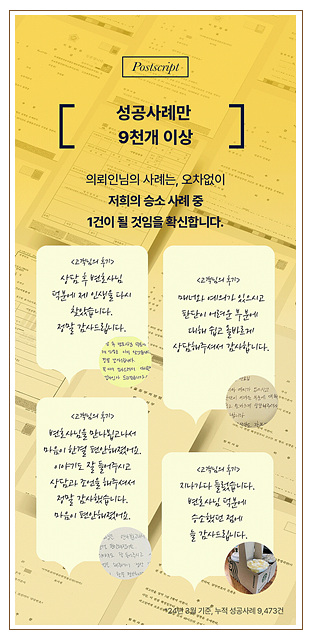 Postscript
성공사례만
9천개 이상
의뢰인님의 사례는, 오차없이
저희의 승소 사례 중
1건이 될 것임을 확신합니다.
<고객님의 후기>
상담 후 변호사님
덕분에 제 인생을 다시
찾았습니다.
정말 감사드립니다.
<고객님의 후기>
매너와 예의가 있으시고
판단이 어려운 부분에
대해 쉽고 올바르게
상담해주셔서 감사합니다.
<고객님의 후기>
변호사님을 만나뵙고나서
마음이 한결 편안해졌어요.
이야기도 잘 들어주시고
상담과 조언을 해주셔서
정말 감사했습니다.
마음이 편안해졌어요.
<고객님의 후기>
지나가다 들렀습니다.
변호사님 덕분에
승소했던 점에
늘 감사드립니다.
*24년 8월 기준, 누적 성공사례 9,473건